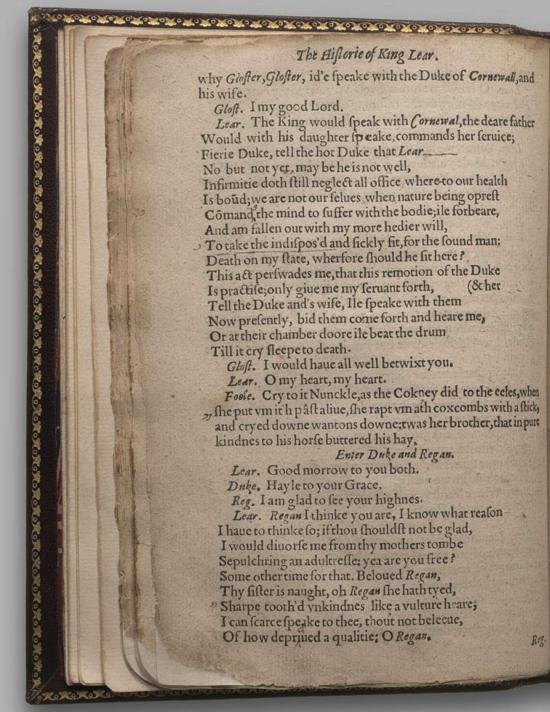 The Historie of King Lear.
why Gloster, Gloster, id'e speake with the Duke of Cornewall, and
his wife.
Glost. I my good Lord.
Lear. The King would speak with Cornewal, the deare father
Would with his daughter speake, commands her seruice;
Fierie Duke, tell the hot Duke that Lear——
No but not yet, may be he is not well,
Infirmitie doth still neglect all office where-to our health
Is boūd; we are not our selues when nature being oprest
Cōmand the mind to suffer with the bodie; ile forbeare,
And am fallen out with my more hedier will,
To take the indispos'd and sickly fit, for the sound man;
Death on my state, wherfore should he sit here?
This act perswades me, that this remotion of the Duke
Is practise; only giue me my seruant forth, (& her
Tell the Duke and's wife, Ile speake with them
Now presently, bid them come forth and heare me,
Or at their chamber doore ile beat the drum
Till it cry sleepe to death.
Glost. I would haue all well betwixt you.
Lear. O my heart, my heart.
Foole. Cry to it Nunckle, as the Cokney did to the eeles, when
„she put vm ith pâst aliue, she rapt vm ath coxcombs with a stick,
and cryed downe wantons downe; twas her brother, that in pure
kindnes to his horse buttered his hay.
Enter Duke and Regan.
Lear. Good morrow to you both.
Duke. Hayle to your Grace.
Reg. I am glad to see your highnes.
Lear. Regan I thinke you are, I know what reason
I haue to thinke so; if thou shouldst not be glad,
I would diuorse me from thy mothers tombe
Sepulchring an adultresse; yea are you free?
Some other time for that. Beloued Regan,
Thy sister is naught, oh Regan she hath tyed,
"Sharpe tooth'd vnkindnes like a vulture heare;
I can scarce speake to thee, thout not beleeue,
Of how depriued a qualitie; O Regan.
Reg.